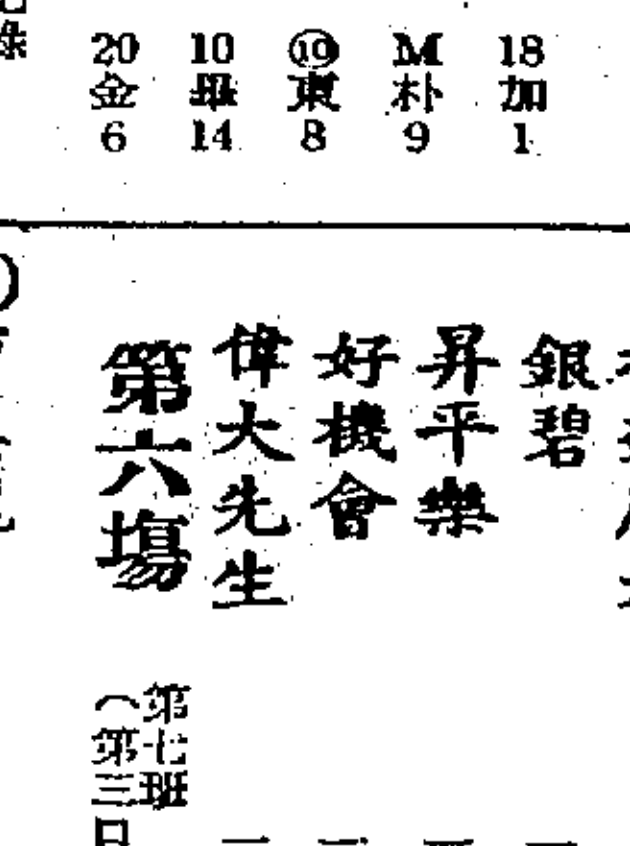 18加1
M朴9
⑩東8
10畢14
20金6
銀碧
昇平樂
好機會
偉大先生
第六塲
第七班
(第三日